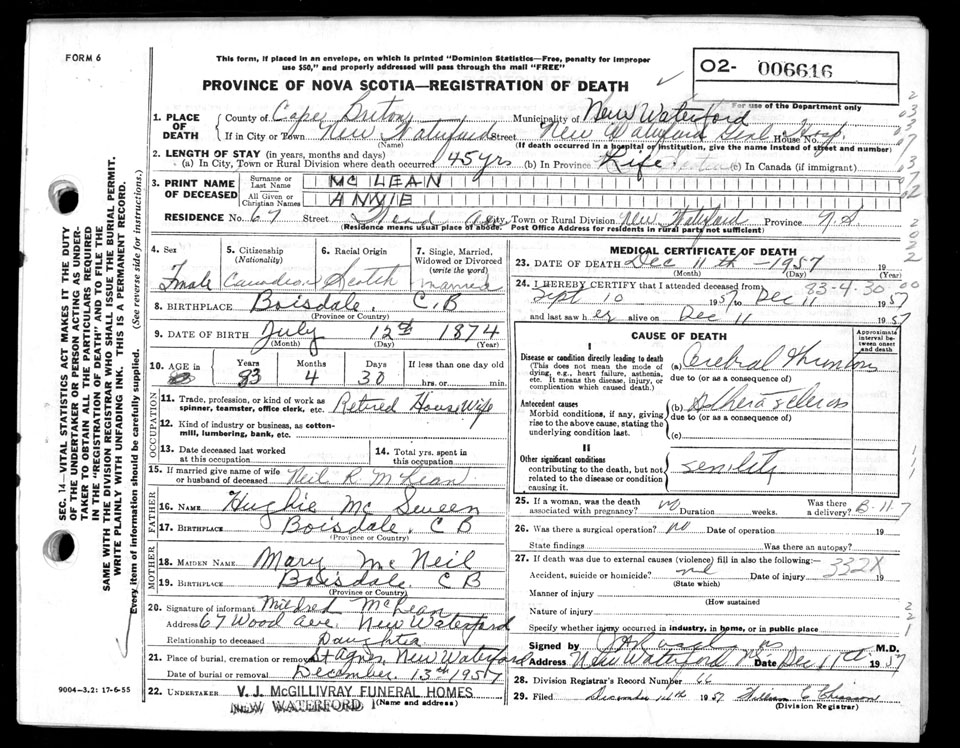 FORM 6
This form, if placed in an envelope, on which is printed "Dominion Statistics—Free, penalty for improper
use $50," and properly addressed will pass through the mail "FREE"
PROVINCE OF NOVA SCOTIA—REGISTRATION OF DEATH
O2- 006616
For use of the Department only
1. PLACE OF DEATH
County of Cape Breton Municipality of New Waterford
If in City or Town New Waterford Street New Waterford Genl Hosp. House No.
(Name) (If death occurred in a hospital or institution, give the name instead of street and number)
2. LENGTH OF STAY (in years, months and days)
(a) In City, Town or Rural Division where death occurred 45 yrs (b) In Province Life (c) In Canada (if immigrant)
3. PRINT NAME OF DECEASED
Surname or Last Name MC LEAN
All Given or Christian Names ANNIE
RESIDENCE No. 67 Street Ave City, Town or Rural Division New Waterford Province N.S
(Residence means usual place of abode. Post Office Address for residents in rural parts not sufficient)
4. Sex
5. Citizenship (Nationality)
6. Racial Origin
7. Single, Married, Widowed or Divorced (write the word)
Fmale Canadian Scotch married
8. BIRTHPLACE Boisdale, C.B
(Province or Country)
9. DATE OF BIRTH July 12th 1874
(Month) (Day) (Year)
10. AGE in Years Months Days If less than one day old
83 4 30 hrs. or min.
OCCUPATION
11. Trade, profession, or kind of work as spinner, teamster, office clerk, etc. Retired House Wife
12. Kind of industry or business, as cotton-mill, lumbering, bank, etc.
13. Date deceased last worked at this occupation
14. Total yrs. spent in this occupation
15. If married give name of wife or husband of deceased Neil R. McLean
FATHER
16. NAME Hughie Mc Sween
17. BIRTHPLACE Boisdale, C B
(Province or Country)
MOTHER
18. MAIDEN NAME Mary Mc Neil
19. BIRTHPLACE Boisdale. C B
(Province or Country)
20. Signature of informant Mildred McLean
Address 67 Wood Ave. New Waterford
Relationship to deceased Daughter
21. Place of burial, cremation or removal St Agnes New Waterford
Date of burial or removal December 13th 1957
22. UNDERTAKER V. J. McGILLIVRAY FUNERAL HOMES
NEW WATERFORD (Name and address)
9004-3.2: 17-6-55
SEC. 14—VITAL STATISTICS ACT MAKES IT THE DUTY
OF THE UNDERTAKER OR PERSON ACTING AS UNDER-
TAKER TO OBTAIN ALL THE PARTICULARS REQUIRED
IN THE "REGISTRATION OF DEATH" AND TO FILE THE
SAME WITH THE DIVISION REGISTRAR WHO SHALL ISSUE THE BURIAL PERMIT.
WRITE PLAINLY WITH UNFADING INK. THIS IS A PERMANENT RECORD.
Every item of information should be carefully supplied. (See reverse side for instructions.)
MEDICAL CERTIFICATE OF DEATH
23. DATE OF DEATH Dec 11th - 1957 19
(Month) (Day) (Year)
83-4-30 00
24. I HEREBY CERTIFY that I attended deceased from
Sept 10 1957 to Dec 11 1957
and last saw her alive on Dec 11 1957
CAUSE OF DEATH
Approximate interval between onset and death
I
Disease or condition directly leading to death
(This does not mean the mode of dying, e.g., heart failure, asthenia, etc. It means the disease, injury, or complication which caused death.)
(a) Cerebral Thrombosis
due to (or as a consequence of)
Antecedent causes
Morbid conditions, if any, giving rise to the above cause, stating the underlying condition last.
(b)
due to (or as a consequence of)
(c)
II
Other significant conditions
contributing to the death, but not related to the disease or condition causing it.
senility
25. If a woman, was the death associated with pregnancy? no Duration weeks. Was there a delivery?
B-11.7
26. Was there a surgical operation? no Date of operation 19
State findings Was there an autopsy?
27. If death was due to external causes (violence) fill in also the following:
332X
Accident, suicide or homicide? Date of injury 19
(State which)
Manner of injury
(How sustained
Nature of injury
Specify whether injury occurred in industry, in home, or in public place
Signed by M.D.
Address New Waterford NS Date Dec 11th. 1957
28. Division Registrar's Record Number 66
29. Filed December 14th 1957 William C Chiasson
(Division Registrar)